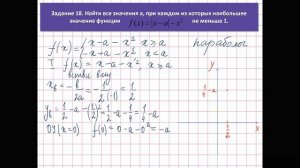 Задание 18. Найти все значения a, при каждом из которых наибольшее
значение функции f(x)=|x-a|-x² не меньше 1.
f(x) = { x-a-x², x≥a
-x+a-x², x<a
парабола
I f(x) = x-a-x², x≥a
ветви вниз
x_B = -b/2a = -1/(2·(-1)) = 1/2
y_B = 1/2 - a - (1/2)² = 1/2 - a - 1/4 = 1/4 - a
OY (x=0) f(0) = 0-a-0² = -a
y
1/4 - a
1/2
x